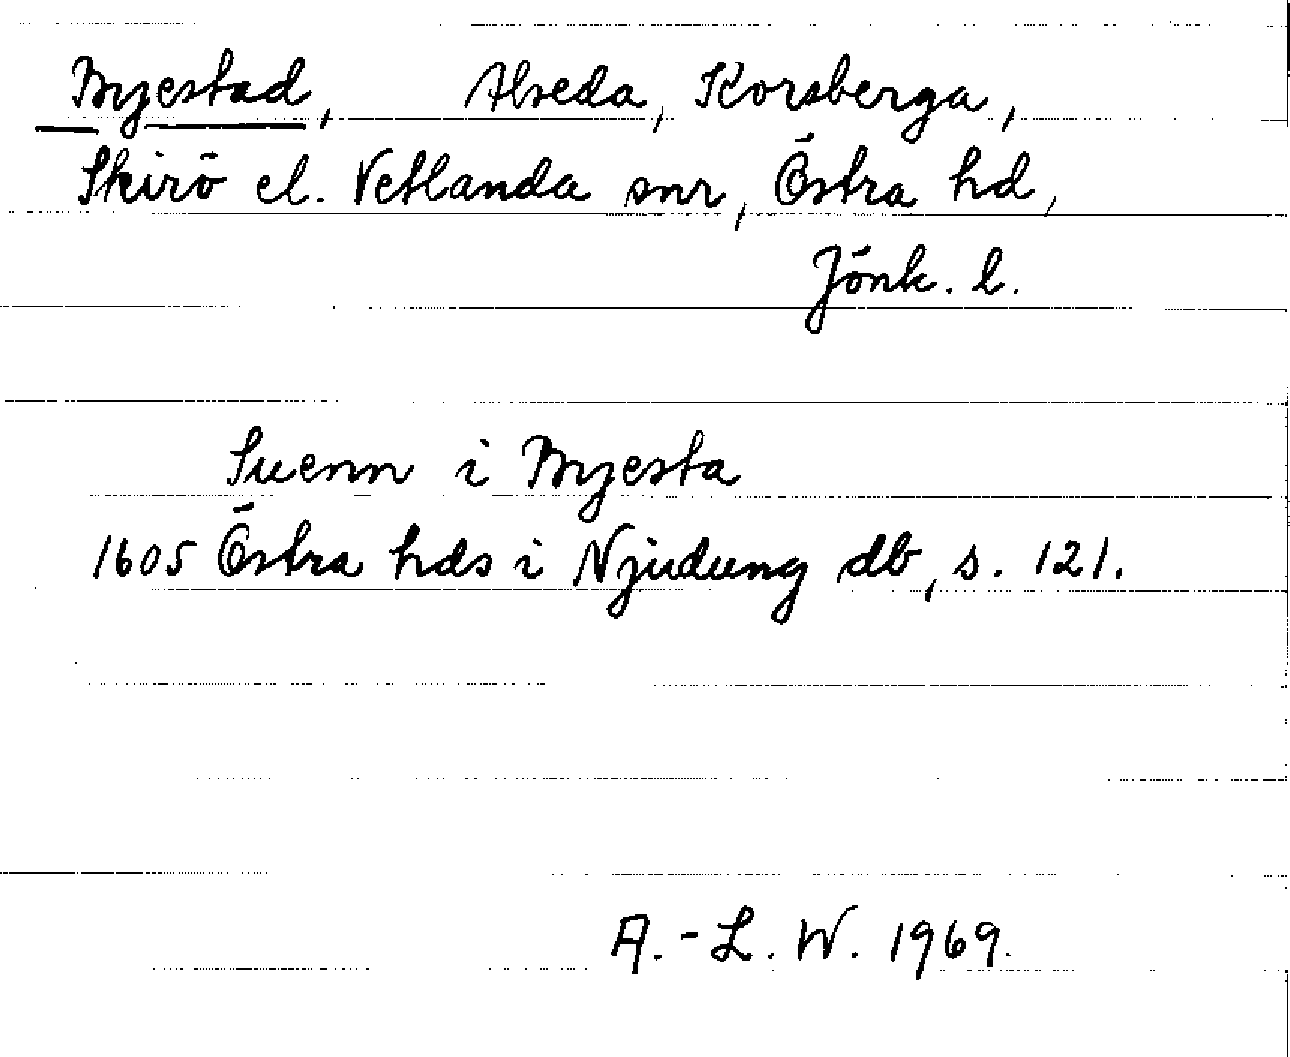 Byestad, Alseda, Korsberga,
Skirö el. Vetlanda snr, Östra hd,
Jönk. l.
Suenn i Byesta
1605 Östra hds i Njudung db, s. 121.
A.-L. W. 1969.